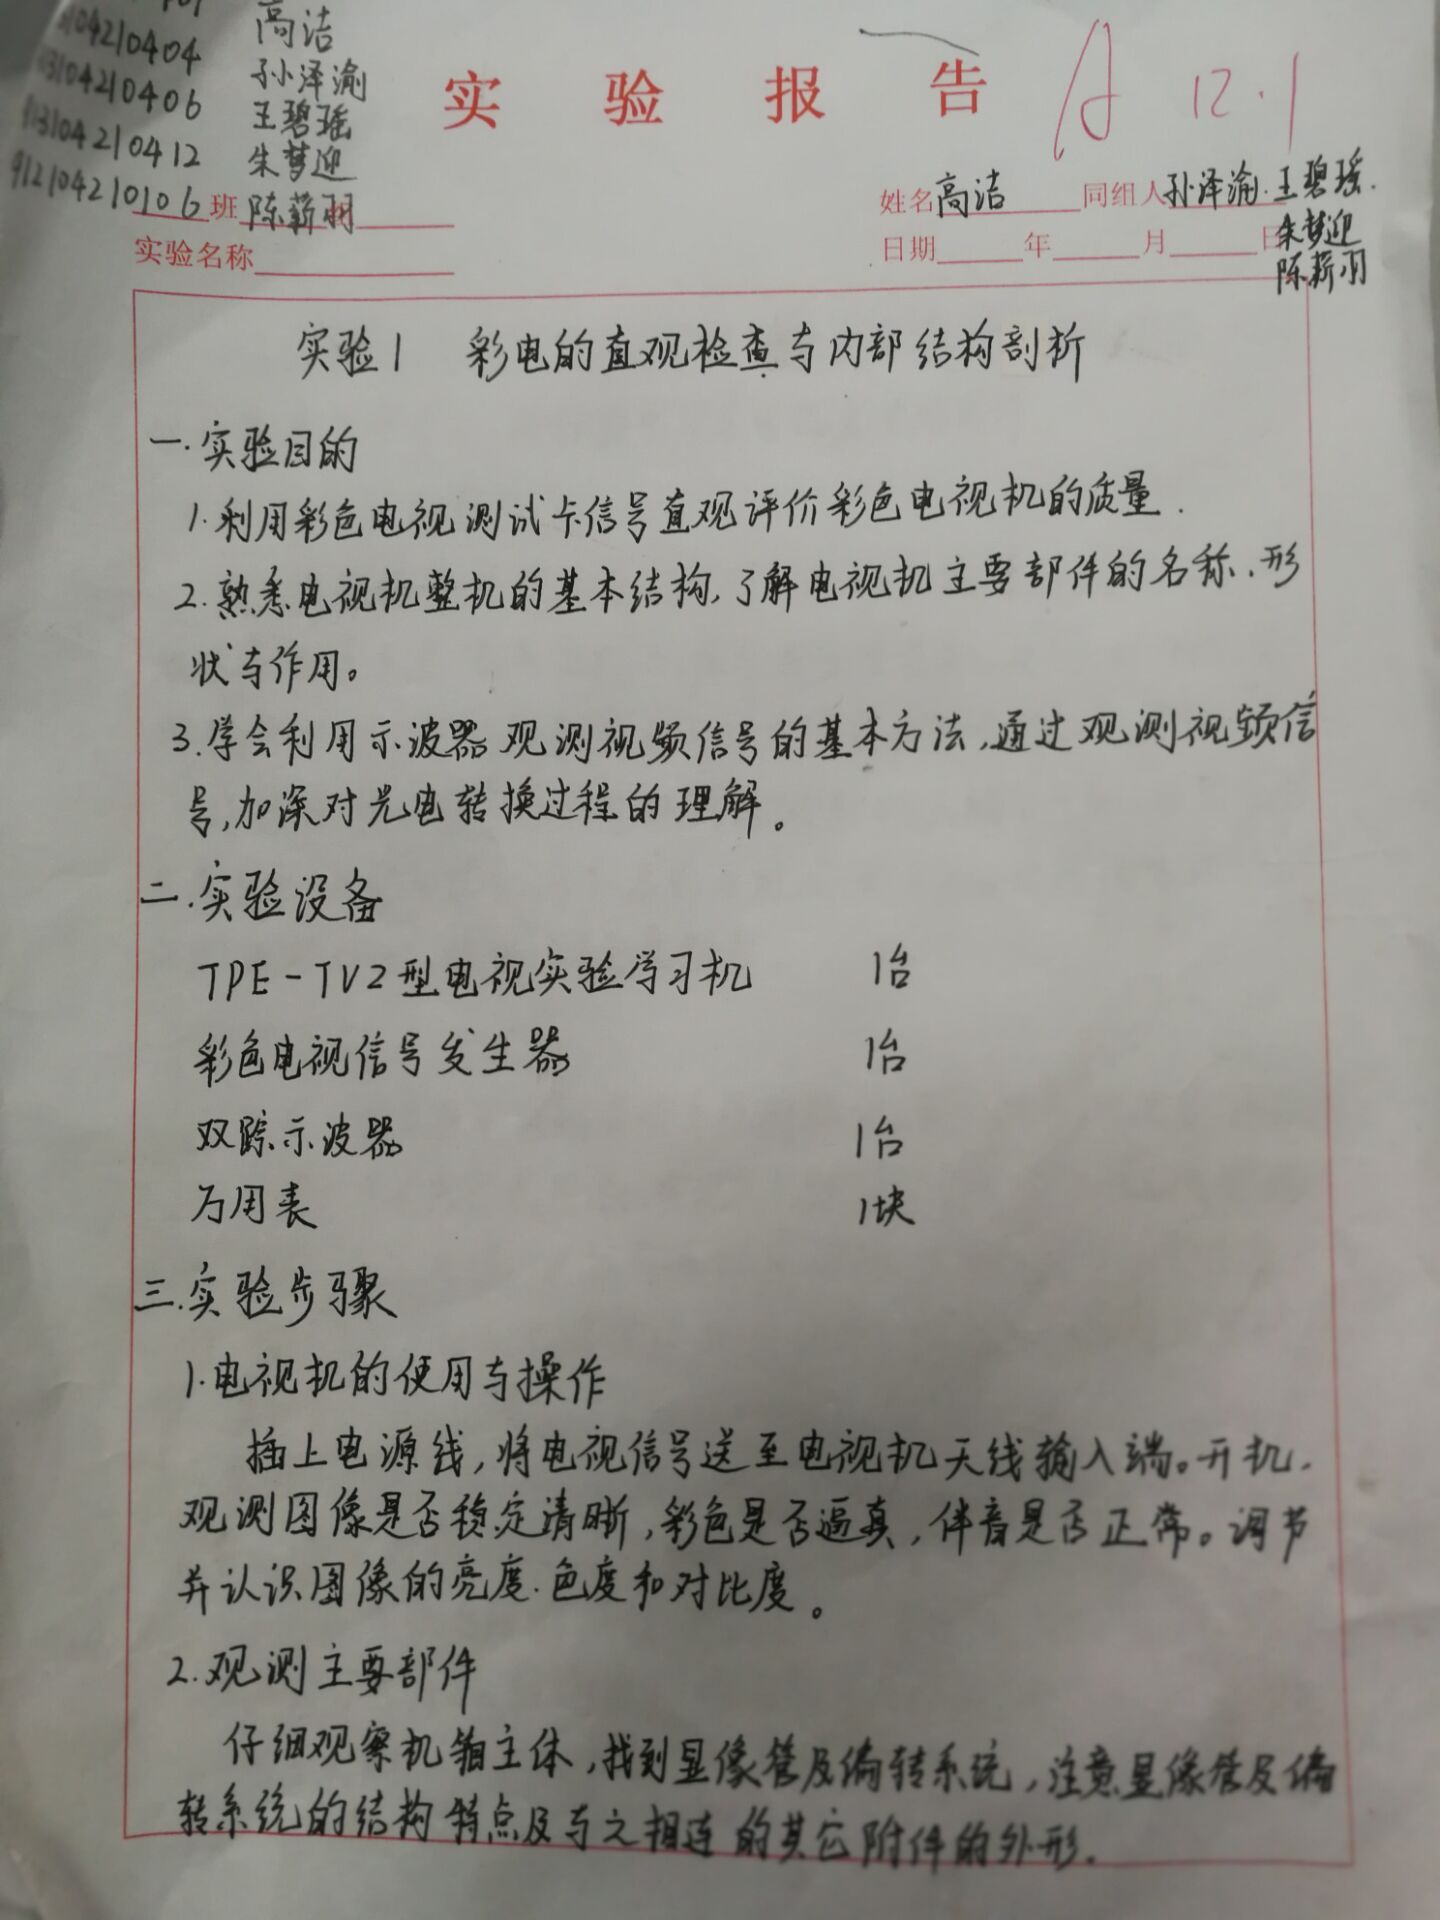 高洁
04210404 孙泽渝
3104210406 王碧瑶
913104210412 朱梦迎
912104210106班 陈薪羽
实验报告
A 12.1
姓名高洁 同组人孙泽渝.王碧瑶.
朱梦迎
陈薪羽
实验名称
日期 年 月 日
实验1 彩电的直观检查与内部结构剖析
一.实验目的
1.利用彩色电视测试卡信号直观评价彩色电视机的质量.
2.熟悉电视机整机的基本结构,了解电视机主要部件的名称.形
状与作用。
3.学会利用示波器观测视频信号的基本方法,通过观测视频信
号,加深对光电转换过程的理解。
二.实验设备
TPE-TV2型电视实验学习机 1台
彩色电视信号发生器 1台
双踪示波器 1台
万用表 1块
三.实验步骤
1.电视机的使用与操作
插上电源线,将电视信号送至电视机天线输入端。开机.
观测图像是否稳定清晰,彩色是否逼真,伴音是否正常。调节
并认识图像的亮度.色度和对比度。
2.观测主要部件
仔细观察机箱主体,找到显像管及偏转系统,注意显像管及偏
转系统的结构特点及与之相连的其它附件的外形.